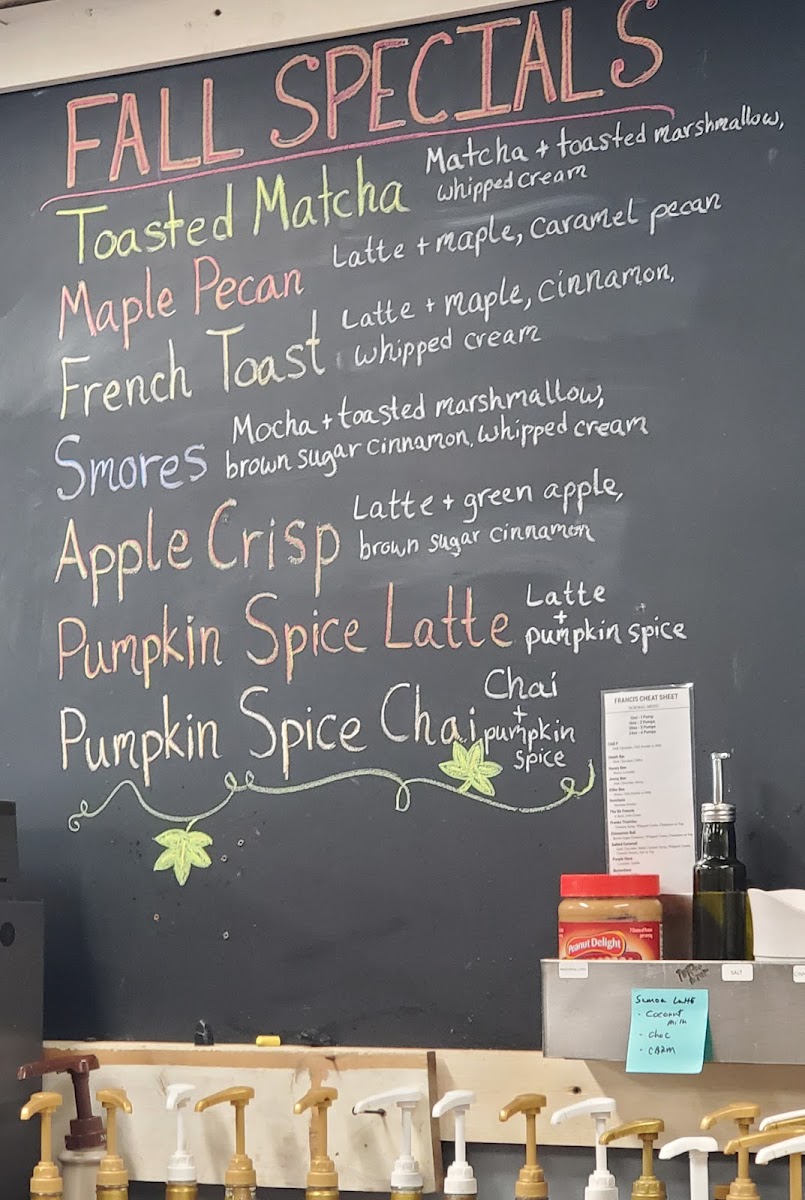 FALL SPECIALS
Toasted Matcha Matcha + toasted marshmallow,
whipped cream
Maple Pecan Latte + maple, caramel pecan
French Toast Latte + maple, cinnamon,
whipped cream
Smores Mocha + toasted marshmallow,
brown sugar cinnamon, whipped cream
Apple Crisp Latte + green apple,
brown sugar cinnamon
Pumpkin Spice Latte Latte
+
pumpkin spice
Pumpkin Spice Chai Chai
+
pumpkin
spice
FRANCIS CHEAT SHEET
Peanut Delight
SALT
Samoa Latte
- Coconut
milk
- Choc
- CARM